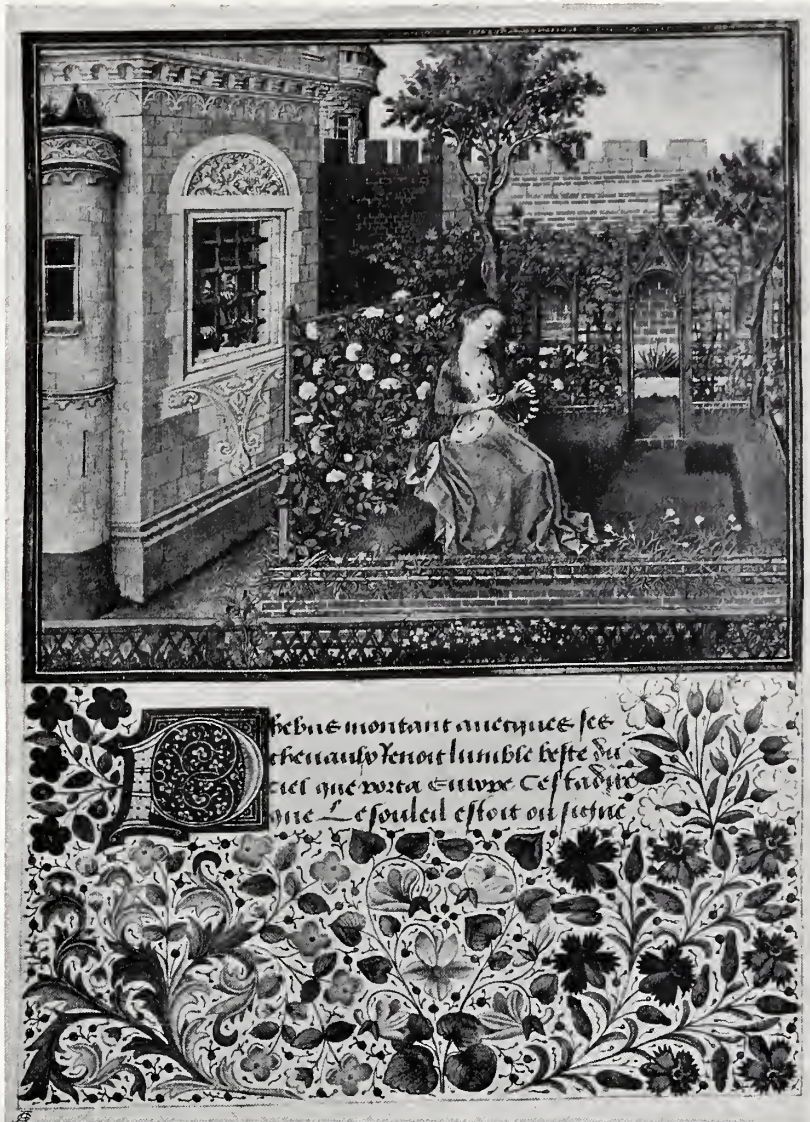 Phebus montant auecques ses
cheuaulx Tenoit lumble beste du
ciel que porta europe Cestadire
que Le souleil estoit ou signe